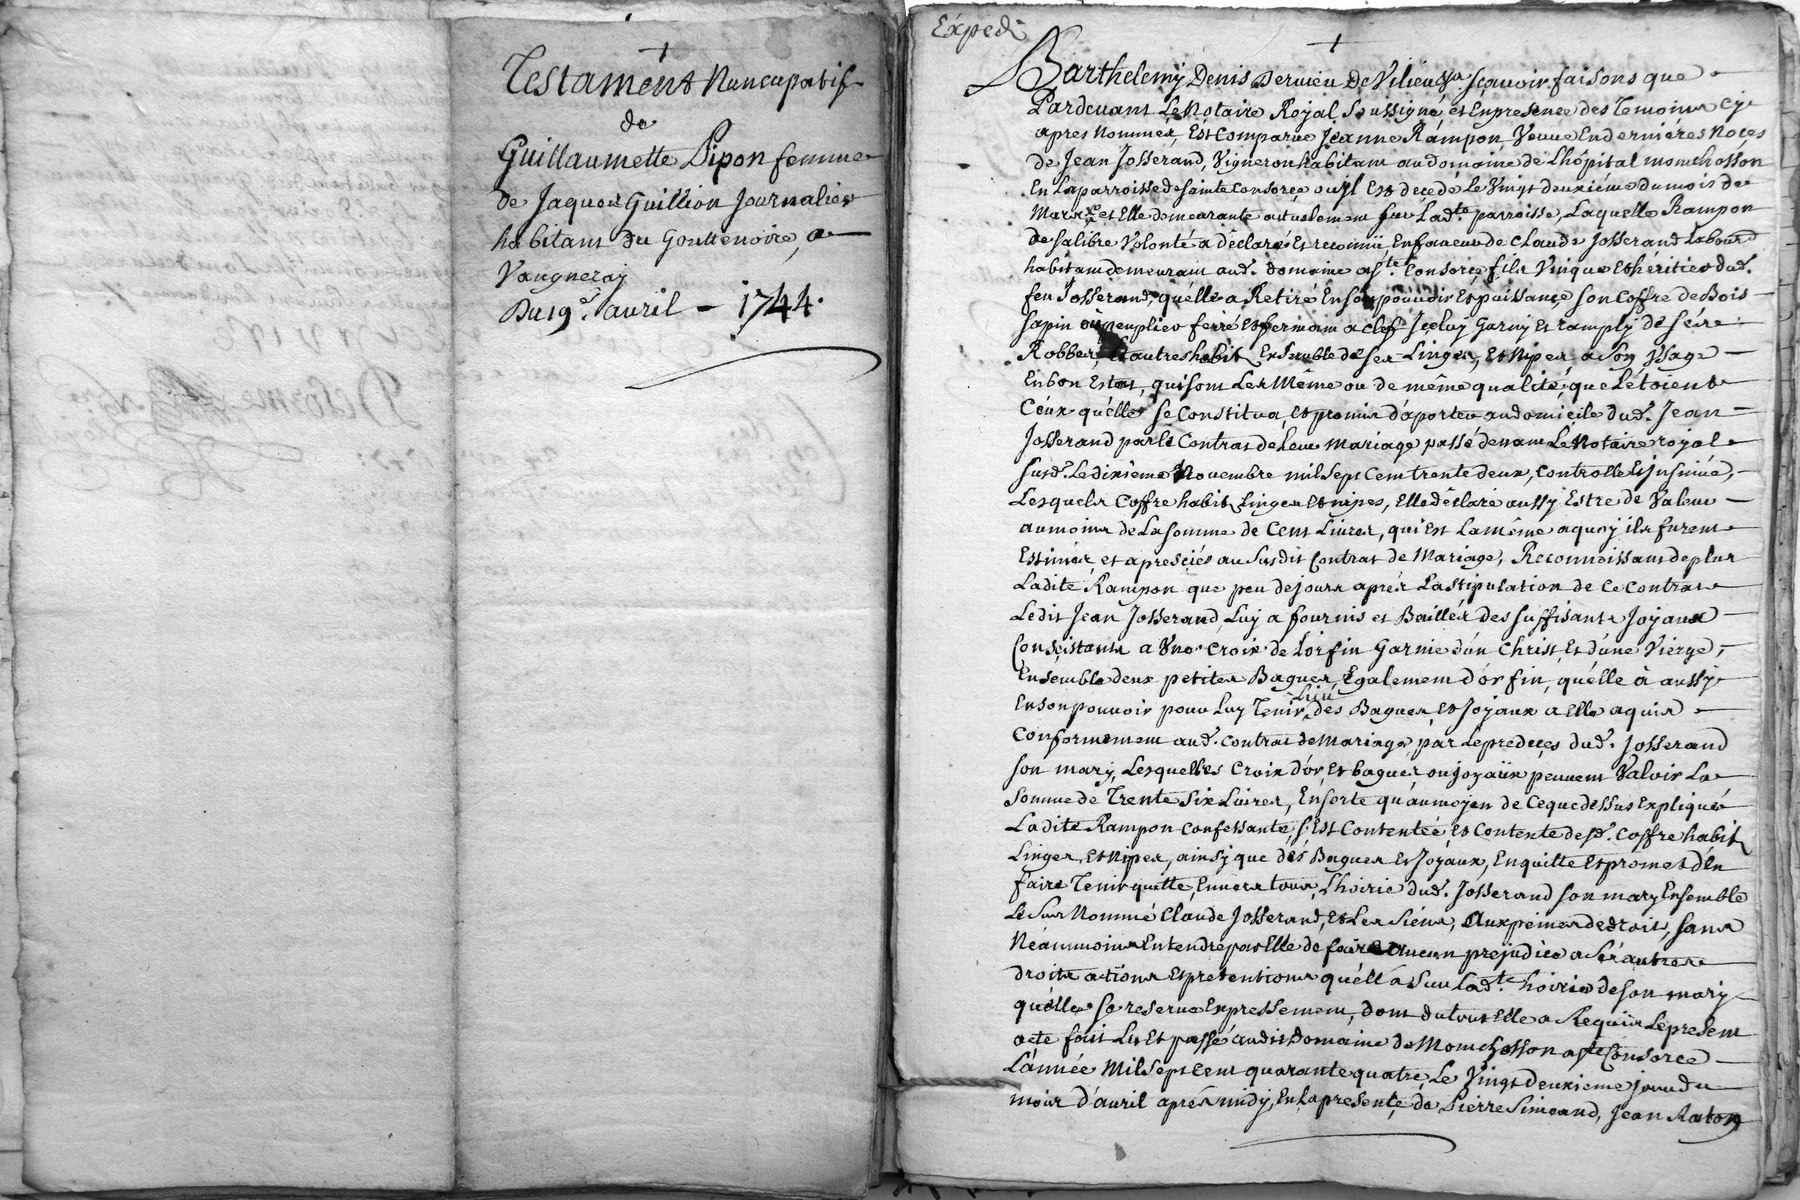 Testament Nuncupatif
de
Guillaumette Pipon femme
de Jaques Guillion Journalier
habitant du Gouttenoire, a
Vaugneray
Du 19e. avril - 1744.
Exped.
Barthelemy Denis Dervieu De Vilieu sçavoir faisons que
Pardevant Le Notaire Royal Soussigné et Enpresence des Temoins cy
apres Nommés, Est Comparue Jeanne Rampon, Veuve En dernières Noces
de Jean Josserand, Vigneron habitant au domaine de L'hôpital momchosson
En La parroisse de Sainte Consorce ou il Est decedé Le Vingt deuxiéme du mois de
Mars et Elle demeurante actuelement sur Lade. parroisse, Laquelle Rampon
de sa libre Volonté a déclaré Et reconnu En faveur de Claude Josserand Labourd
habitant demeurant aud. domaine a ste. Consorce fils Unique Et héritier dud.
feu Josserand, qu'élle a Retiré En son pouvoir Et puissance son Coffre de Bois
sapin ou peuplier ferré Et fermant a clef Iceluy Garny Et ramply de sés
Robbes, Et autres habits Ensemble de ses Linges, Et Nipes a Son Usage
En bon Estat, qui sont Les Même ou de même qualité que L'étoient
Ceux qu'élle se Constitua, Et promis d'aporter au domicile dud. Jean
Josserand par Le Contrat de Leur Mariage passé devant Le Notaire royal
susd. Le dixième Novembre mil Sept Cent trente deux, Controllé Et insinué,
Lesquels Coffre habits Linges Et nipes, Elle déclare aussy Estre de Valeur
au moins de La Somme de Cent Livres, qui Est La même a quoy ils furent
Estimés et apresciés au Susdit Contrat de Mariage, Reconnoissant de plus
Ladite Rampon que peu de jours aprés La stipulation de Ce Contrat
Ledit Jean Josserand, Luy a fournis et Baillés des suffisants Joyaux
Consistants a Une Croix de L'or fin Garnie d'un Christ, Et d'une Vierge,
Ensemble deux petites Bagues, Egalement d'or fin, qu'élle à aussy
En son pouvoir pour Luy Tenir Lieu des Bagues, Et Joyaux a Elle aquis
Conformement aud. Contrat de Mariage, par Le predeces dud. Josserand
son mary, Lesquelles Croix d'or, Et bagues ou joyaux peuvent Valoir La
Somme de Trente Six Livres, En sorte qu'au moyen de Ce que dessus Expliqué
La dite Rampon confessante, s'Est Contentée Et Contente desd. Coffre habits
Linges, Et Nipes, ainsy que dés Bagues Et Joyaux, En quitte Et promet d'En
faire Tenir quitte, Envers tous, L'hoirie dud. Josserand son mary Ensemble
Le Sus Nommé Claude Josserand, Et Les Siens, Aux peines de droit, sans
Néanmoins Entendre par Elle de faire aucun préjudice a Ses autres
droits actions Et pretentions qu'éll'a Sur Lade. hoirie de son mary
qu'élle se reserve Expressement, dont du tout Elle a Requis Le present
acte fait Lu Et passé audit Domaine de Momchosson a ste Consorce
L'année Mil Sept Cent quarante quatre, Le Vingt deuxieme jour du
mois d'avril aprés midy, En La presence de Pierre Simeand, Jean Raton